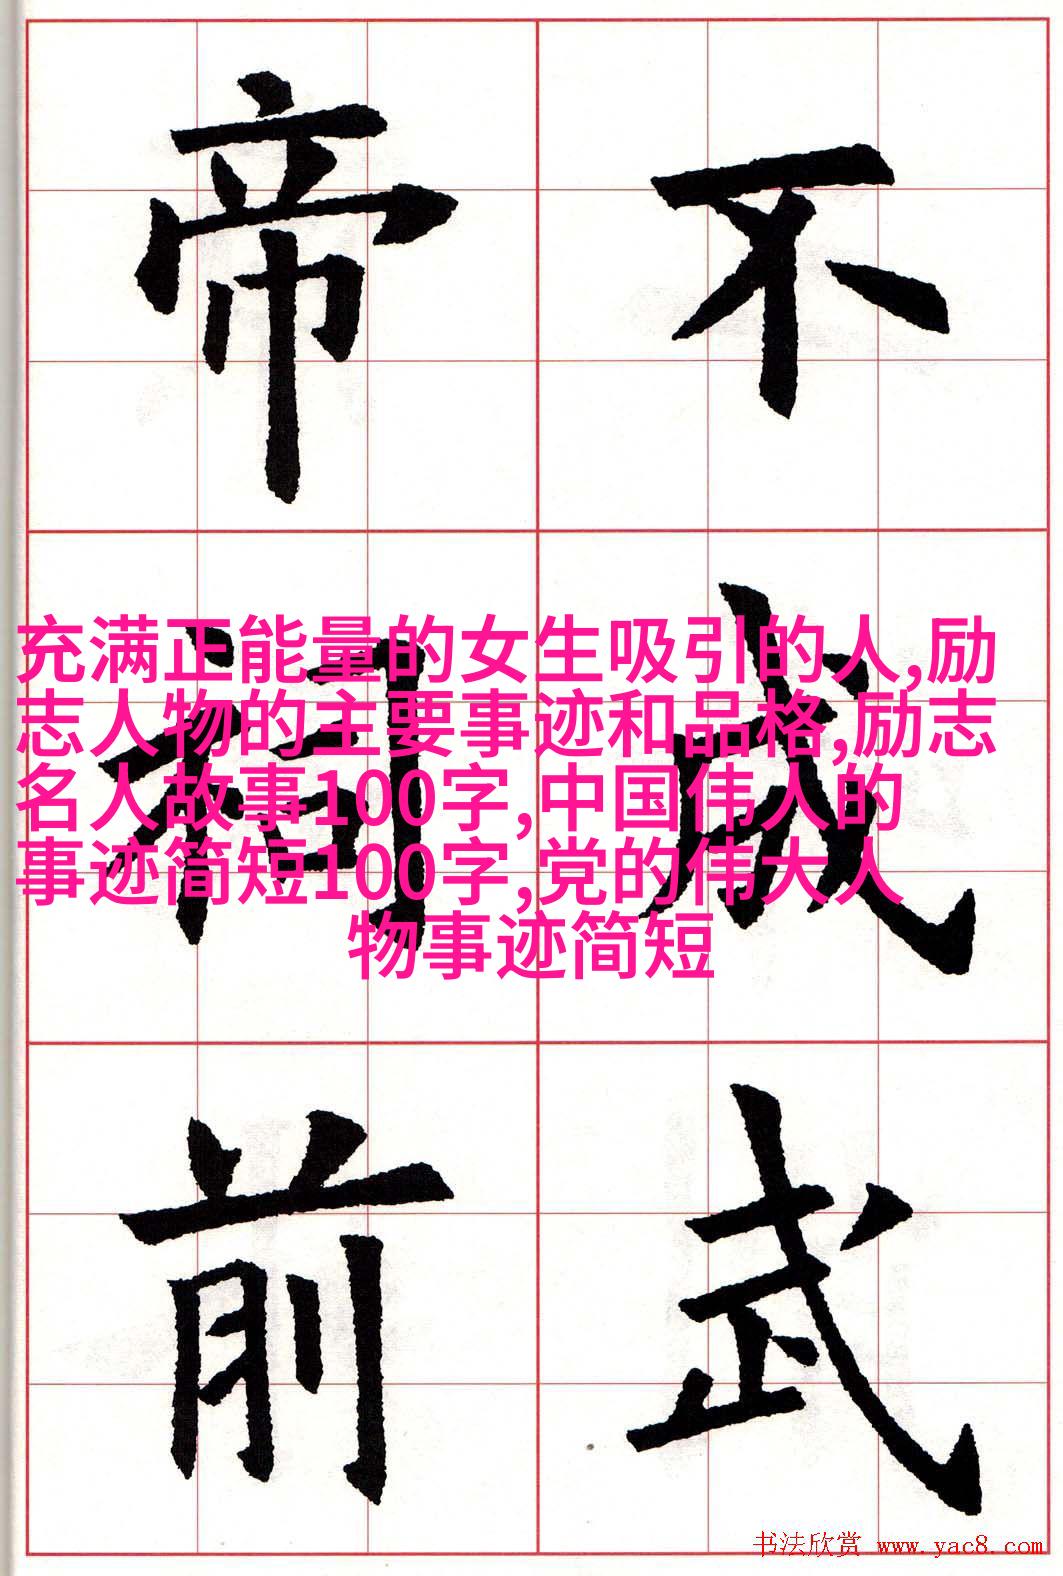 不成武
帝祠前
充满正能量的女生吸引的人,励
志人物的主要事迹和品格,励志
名人故事100字,中国伟人的
事迹简短100字,党的伟大人
物事迹简短
书法欣赏 www.yac8.com